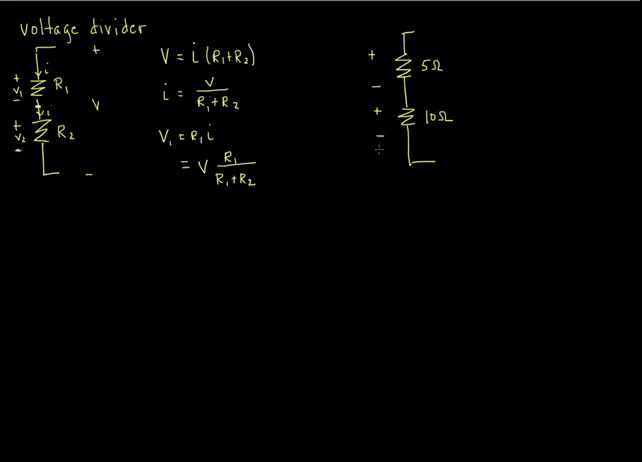 voltage divider
+
i
+
V₁
-
R₁
V = i (R₁+R₂)
i = V / R₁+R₂
i
V
+
V₂
-
R₂
V₁ = R₁ i
= V R₁ / R₁+R₂
-
+
5Ω
-
+
10Ω
-